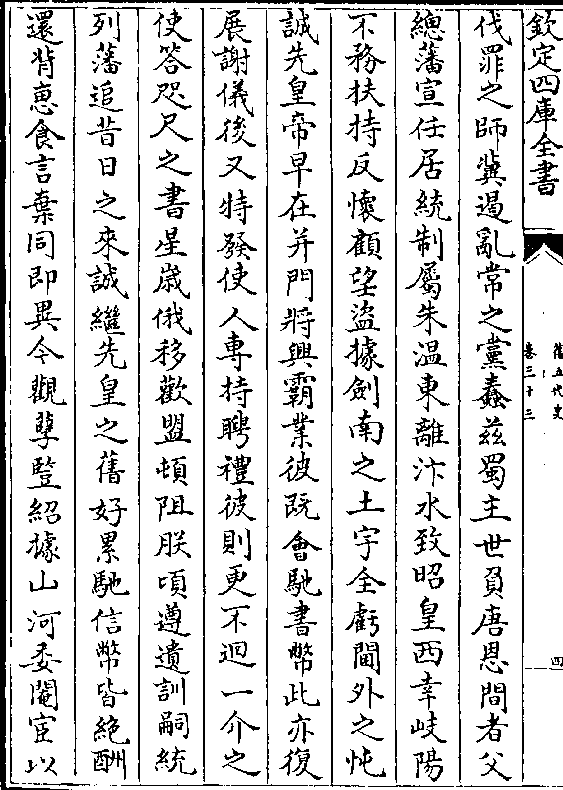 欽定四庫全書
舊五代史
卷三十三
四
伐罪之師冀遏亂常之黨蠢茲蜀主世負唐恩間者父
總藩宣任居統制屬朱溫東離汴水致昭皇西幸岐陽
不務扶持反懷顧望盜據劍南之土宇全虧閫外之忱
誠先皇帝早在并門將興霸業彼既會馳書幣此亦復
展謝儀後又特發使人專持聘禮彼則更不迴一介之
使答咫尺之書星歲俄移歡盟頓阻朕頃遵遺訓嗣統
列藩追昔日之來誠繼先皇之舊好累馳信幣皆絕酬
還背惠食言棄同即異今觀孽豎紹據山河委閹宦以